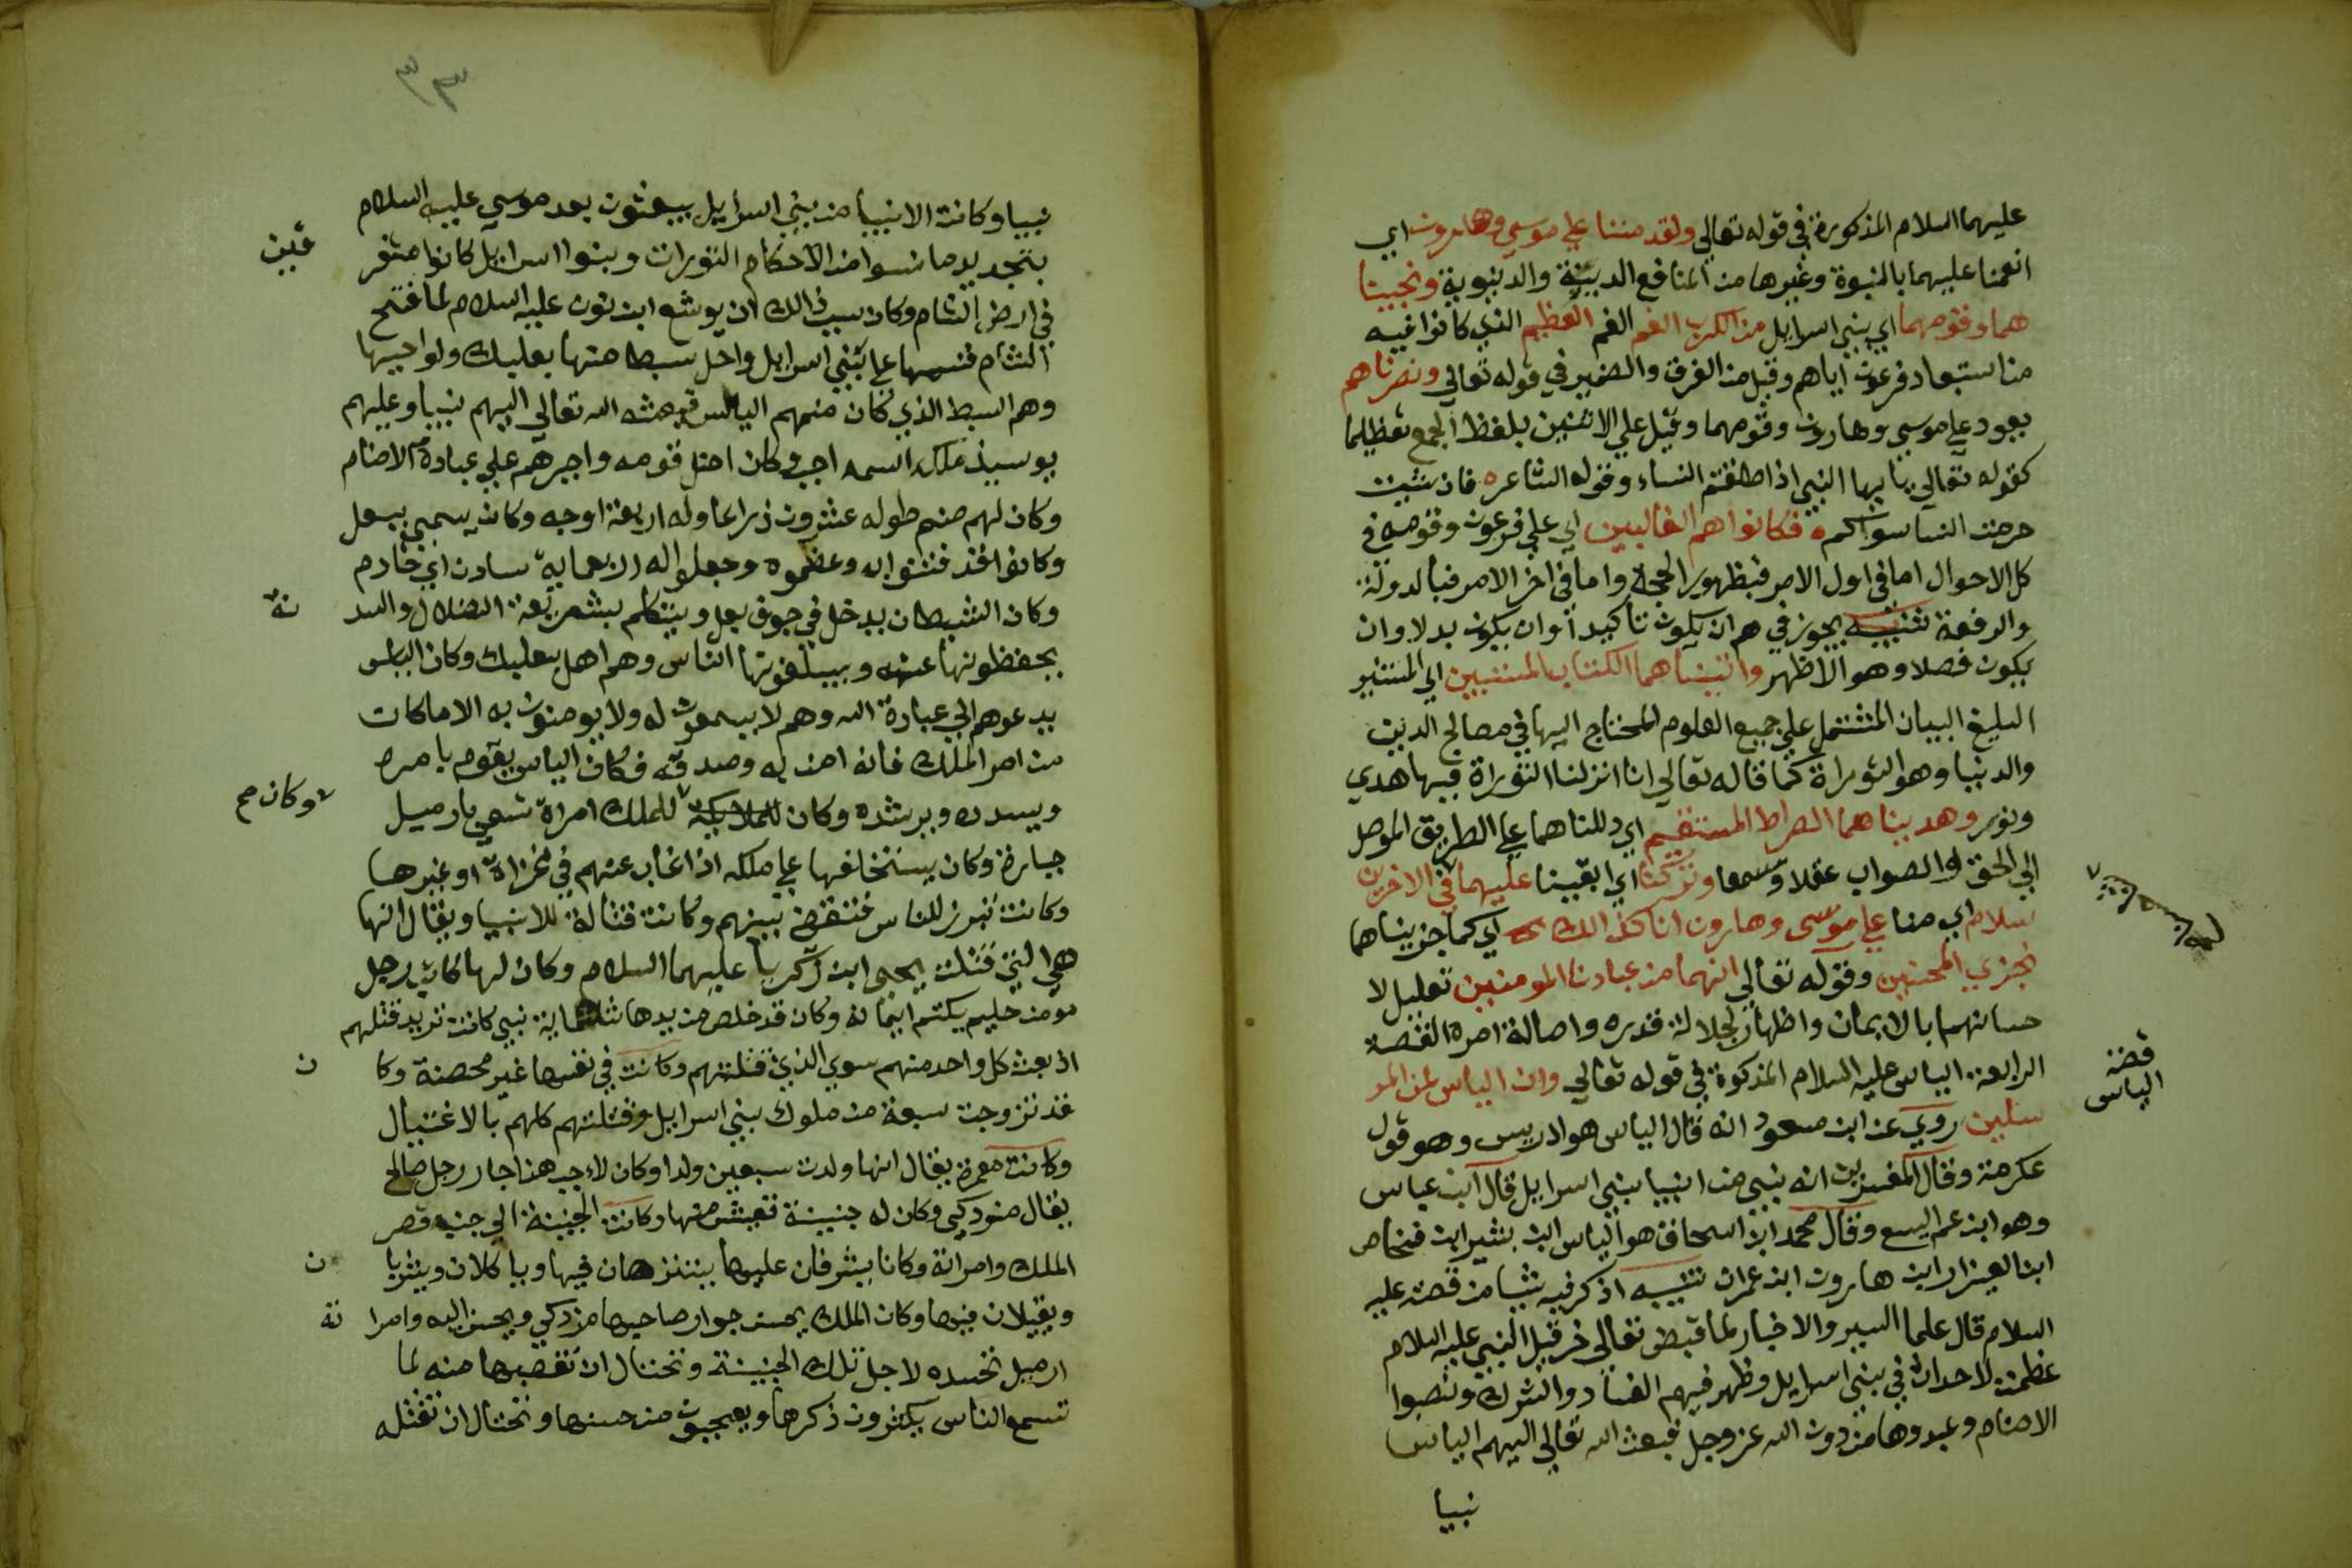 عليهما السلام المذكورة في قوله تعالي ولقد مننا علي موسي وهارون اي
انعمنا عليهما بالنبوة وغيرها من المنافع الدينية والدنيوية ونجينا
هما وقومهما اي بني اسرايل من الكرب الغم الغم العظيم الذي كانوا فيه
من استبعاد فرعون اياهم وقيل من الغرق والضمير في قوله تعالي ونصرناهم
يعود علي موسي وهارون وقومهما وقيل علي الاثنين بلفظ الجمع تعظيما
كقوله تعالي يا ايها النبي اذا طلقتم النساء وقوله الشاعر ه فان شيت
حرمت النسا سواكم ه فكانوا هم الغالبين اي علي فرعون وقومه في
كل الاحوال اما في اول الامر فبظهور الحجة واما في اخر الامر فبالدولة
والرفعة تنبيه يجوز في هم ان يكون تاكيدا وان يكون بدلا وان
يكون فصلا وهو الاظهر واتيناهما الكتاب المستبين اي المستنير
البليغ البيان المشتمل علي جميع العلوم المحتاج اليها في مصالح الدين
والدنيا وهو التوراة كما قاله تعالي انا انزلنا التوراة فيها هدي
ونور وهديناهما الصراط المستقيم اي دللناهما علي الطريق الموصل
الي الحق والصواب عقلا وسمعا وتركنا اي ابقينا عليهما في الاخرين
سلام اي منا علي موسى وهارون انا كذالك اي كما جزيناهما
نجزي المحسنين وقوله تعالي انهما من عبادنا المومنين تعليل لا
حسانهما بالايمان واظهار لجلالة قدره واصالة امره القصة
الرابعة الياس عليه السلام المذكوة في قوله تعالي وان الياس لمن المر
سلين روي عن ابن مسعود انه قال الياس هو ادريس وهو قول
عكرمة وقال المفسرين انه نبي من انبيا بني اسرايل قال ابن عباس
وهو ابن عم اليسع وقال محمد ابن اسحاق هو الياس ابن بشير ابن فنحاص
ابن العيزار ابن هارون ابن عمران تنبيه اذكر فيه شيا من قصته عليه
السلام قال علما السير والاخبار لما قبض تعالي حزقيل النبي عليه السلام
عظمت الاحداث في بني اسرايل وظهر فيهم الفساد والشرك ونصبوا
الاصنام وعبدوها من دون الله عز وجل فبعث الله تعالي اليهم الياس
نبيا
قصة
الياس
٣٣
نبيا وكانت الانبيا من بني اسرايل يبعثون بعد موسي عليه السلام
بتجديد ما نسوا من الاحكام التورات وبنوا اسرايل كانوا متفر
قين
في ارض الشام وكان سبب ذالك ان يوشع ابن نون عليه السلام لما فتح
الشام قسمها علي بني اسرايل واحل سبطا منها بعلبك ونواحيها
وهم السبط الذي كان منهم الياس فبعثه الله تعالي اليهم نبيا وعليهم
يوميذ ملك اسمه اجب وكان اضل قومه واجبرهم علي عبادة الاصنام
وكان لهم صنم طوله عشرون ذراعا وله اربعة اوجه وكان يسمي ببعل
وكانوا قد فتنوا به وعظموه وجعلوا له اربعماية سادن اي خادم
وكان الشيطان يدخل في جوف بعل ويتكلم بشريعة الضلال والسد
نة
يحفظونها عنه ويبلغونها الناس وهم اهل بعلبك وكان الياس
يدعوهم الي عبادة الله وهم لا يسمعون له ولا يومنون به الا ماكان
من امر الملك فانه امن به وصدقه فكان الياس يقوم بامره
ويسدده ويرشده وكان للملك امراة تسمي ارميل
وكان صح
جبارة وكان يستخلفها علي ملكه اذا غاب عنهم في غزاة او غيرها
وكانت تبرز للناس فتقضي بينهم وكانت قتالة للانبيا ويقال انها
هي التي قتلت يحيى ابن زكريا عليهما السلام وكان لها كاتب رجل
مومن حليم يكتم ايمانه وكان قد خلص من يدها ثلثماية نبي كانت تريد قتلهم
اذ بعث كل واحد منهم سوي الذي قتلتهم وكانت في نفسها غير محصنة وكا
ن
قد تزوجت سبعة من ملوك بني اسرايل وقتلتهم كلهم بالاغتيال
وكانت معمرة يقال انها ولدت سبعين ولدا وكان لاجب هذا جار رجل صالح
يقال مزدكي وكان له جنينة تعيش منها وكانت الجنينة الي جنب قصر
الملك وامراته وكانا يشرفان عليها يتنزهان فيها وياكلان ويشربا
ن
ويقيلان فيها وكان الملك يحسن جوار صاحبها مزدكي ويحسن اليه وامرا
ته
ارميل تحسده لاجل تلك الجنينة وتحتال ان تغصبها منه لما
تسمع الناس يكثرون ذكرها ويعجبون من حسنها وتحتال ان تقتله